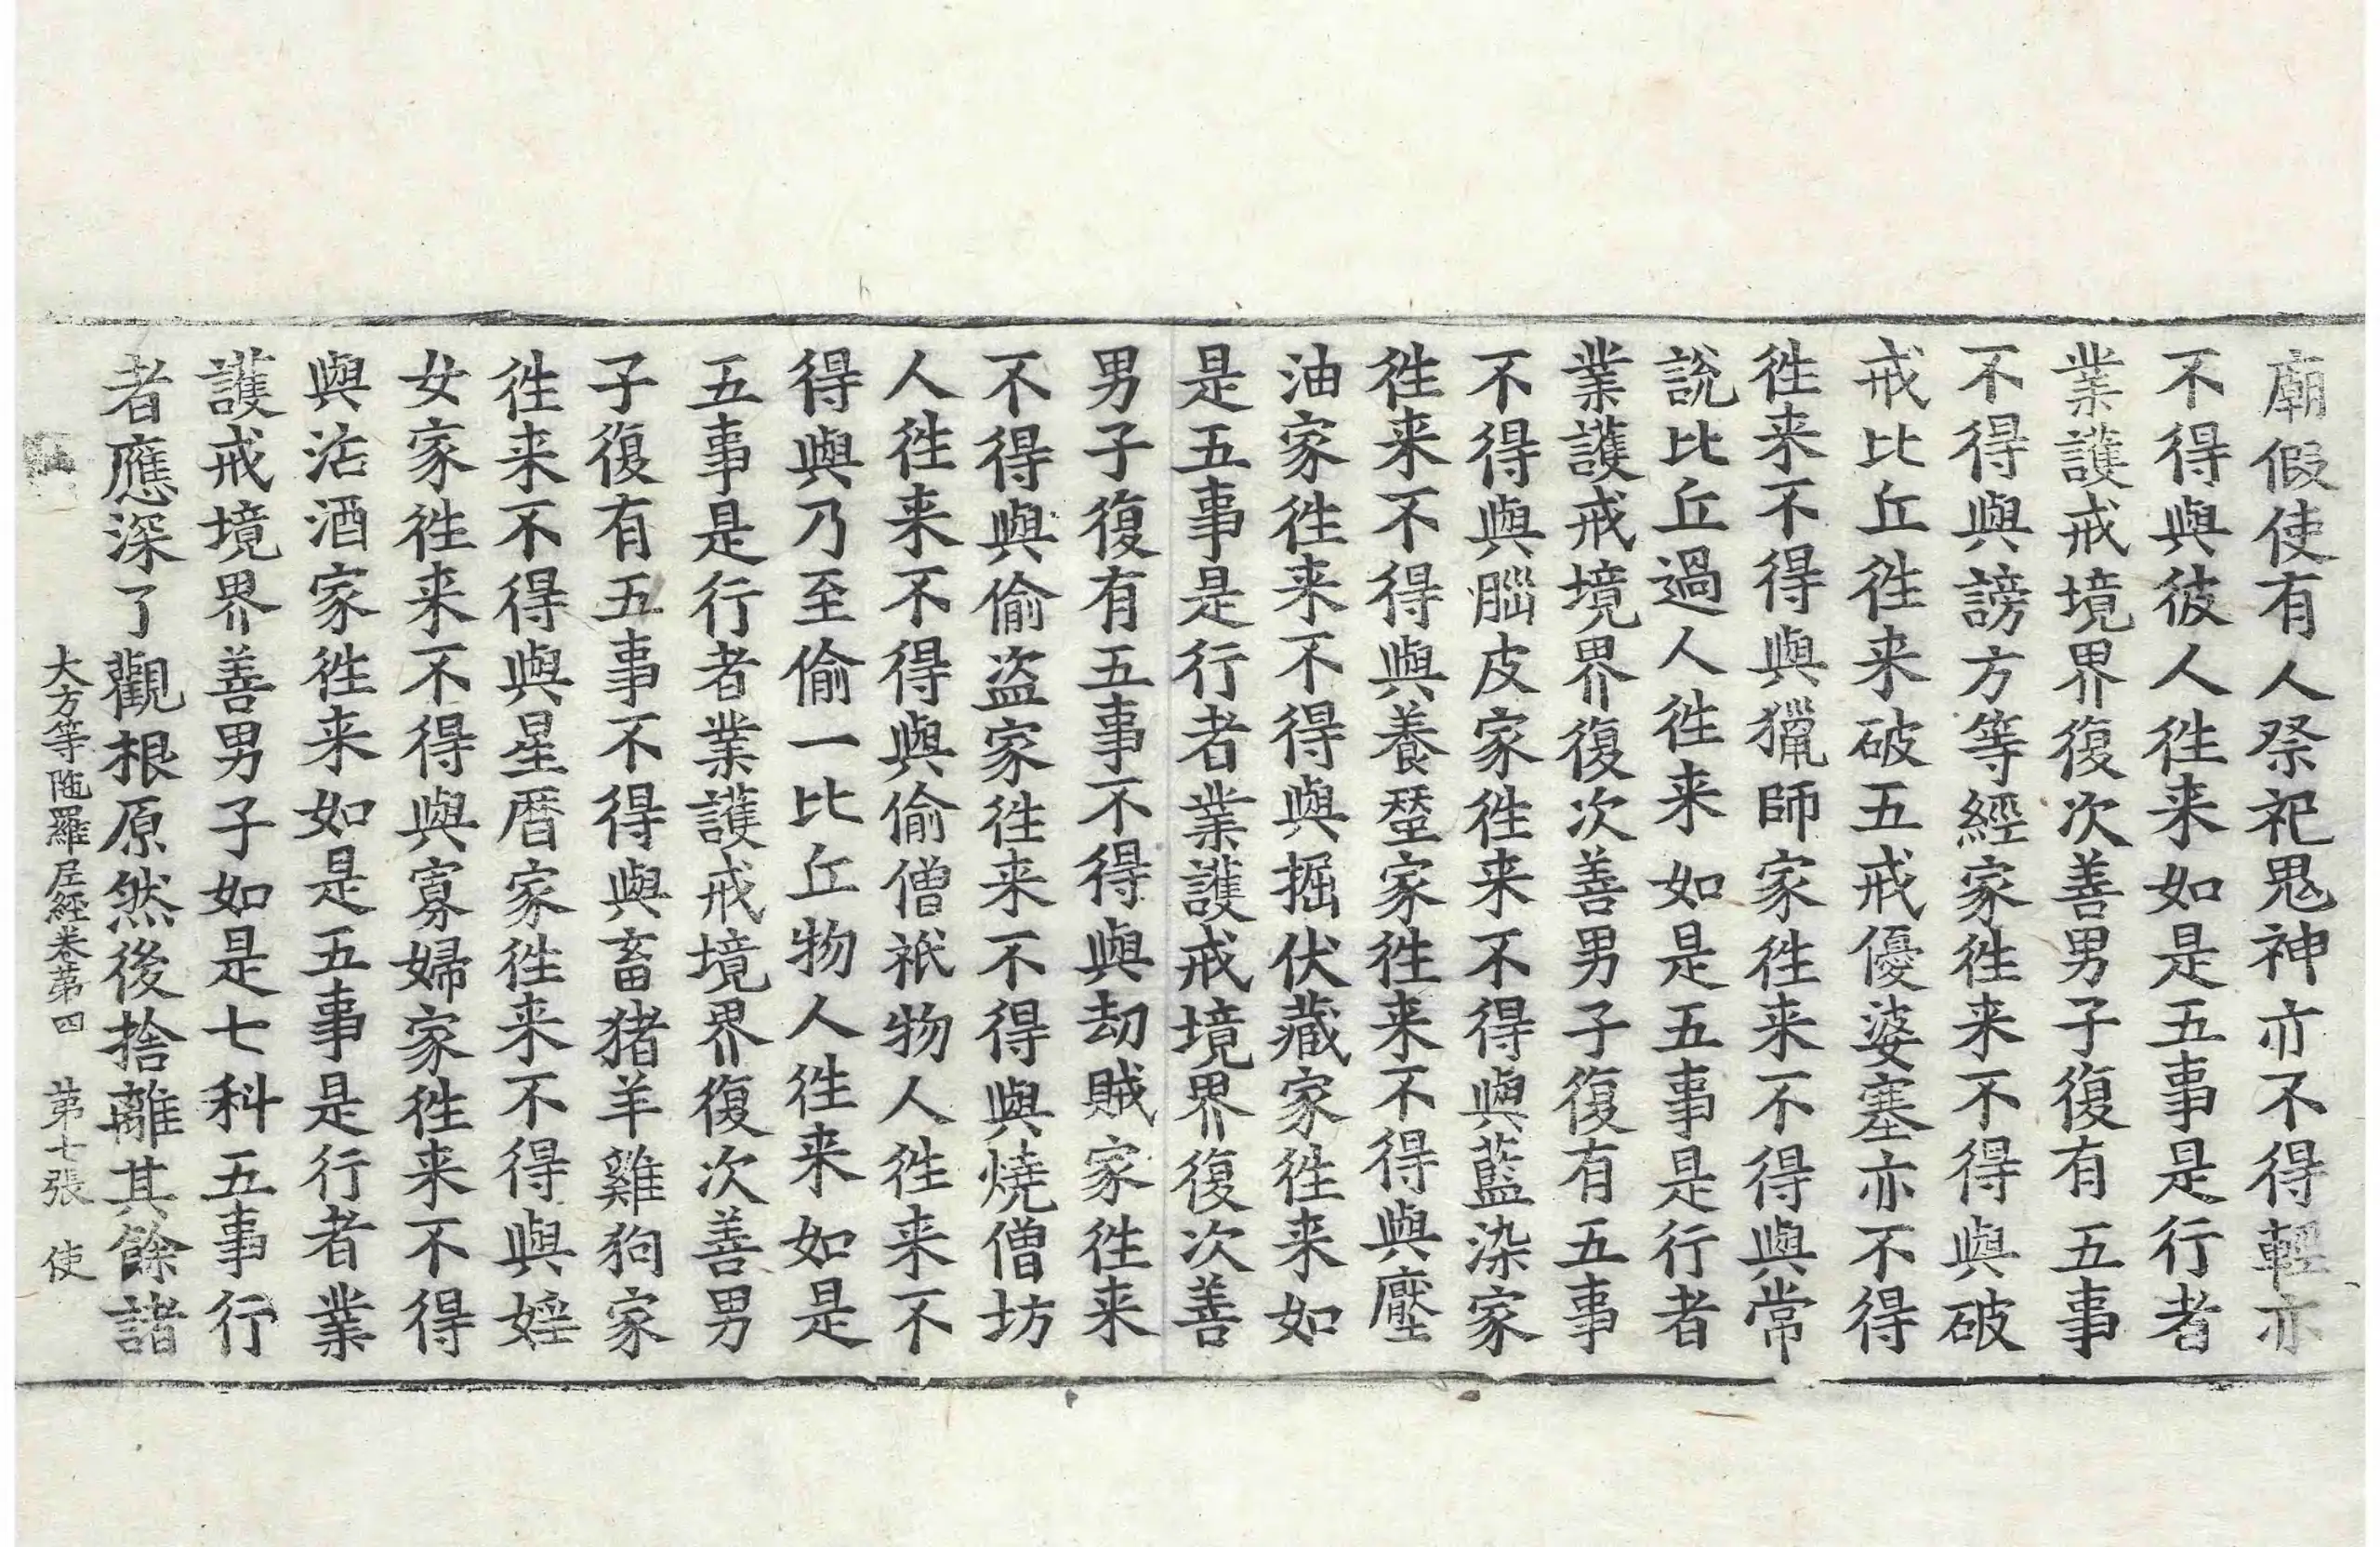 廟假使有人祭祀鬼神亦不得輕亦
不得與彼人往来如是五事是行者
業護戒境界復次善男子復有五事
不得與謗方等經家往来不得與破
戒比丘往来破五戒優婆塞亦不得
往来不得與獵師家往来不得與常
說比丘過人往来如是五事是行者
業護戒境界復次善男子復有五事
不得與腦皮家往来不得與藍染家
往来不得與養蚕家往来不得與壓
油家往来不得與掘伏藏家往来如
是五事是行者業護戒境界復次善
男子復有五事不得與劫賊家往来
不得與偷盗家往来不得與燒僧坊
人往来不得與偷僧祇物人往来不
得與乃至偷一比丘物人往来如是
五事是行者業護戒境界復次善男
子復有五事不得與畜猪羊雞狗家
往来不得與星曆家往来不得與婬
女家往来不得與寡婦家往来不得
與沽酒家往来如是五事是行者業
護戒境界善男子如是七科五事行
者應深了觀根原然後捨離其餘諸
大方等陁羅尼經卷第四 第七張 使